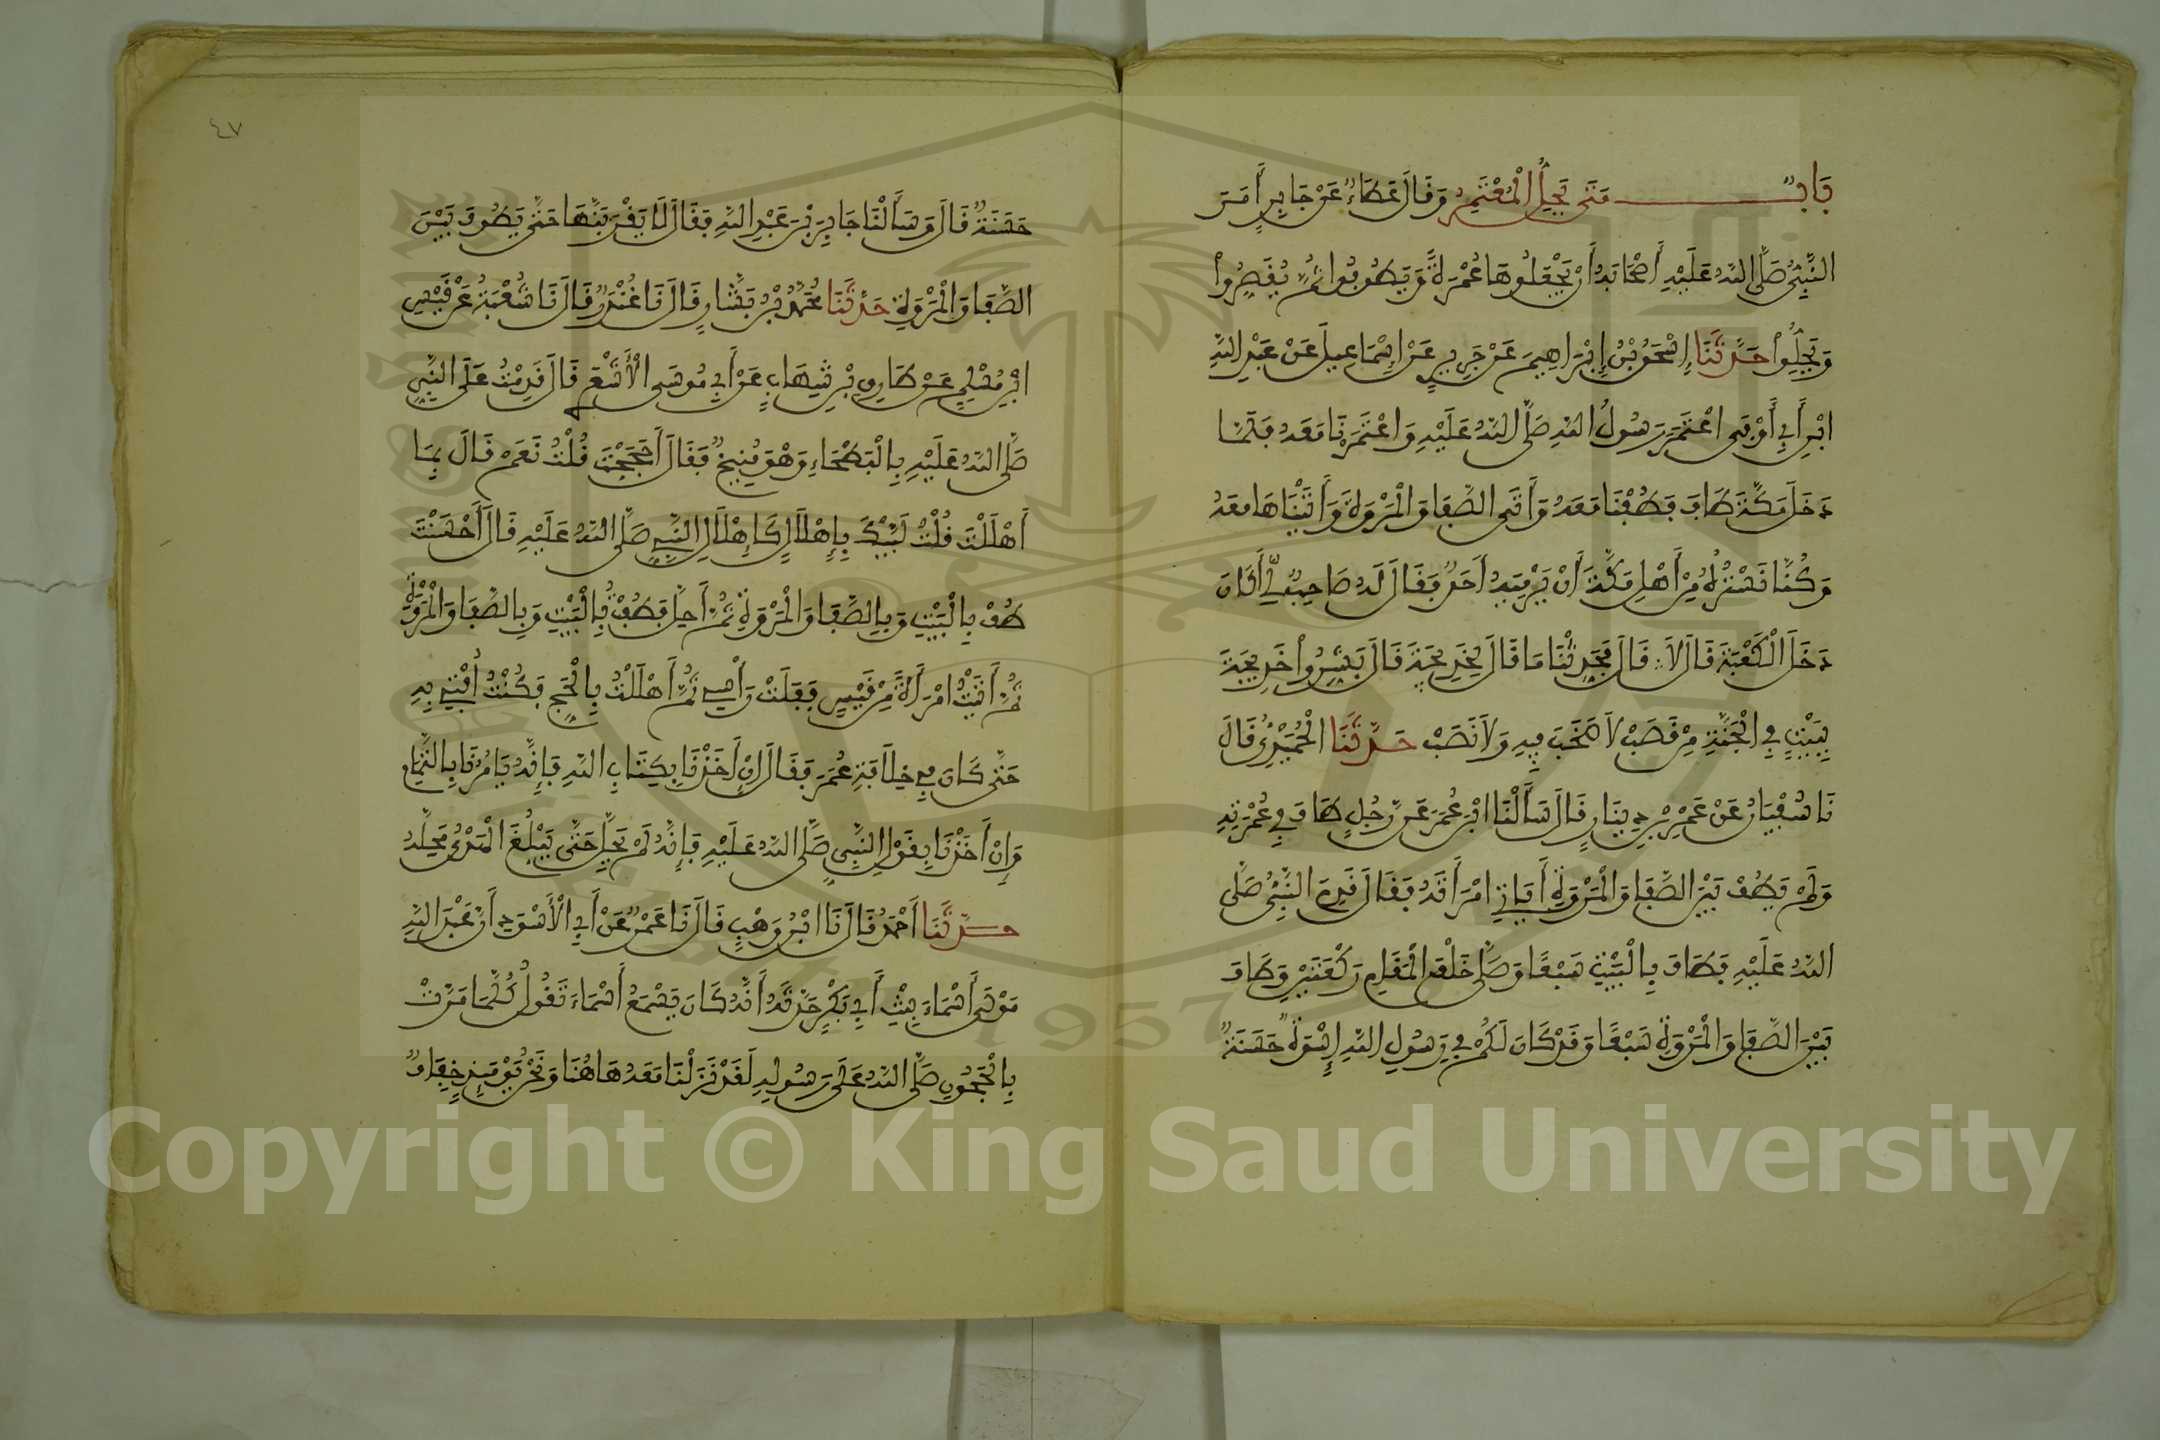 بَابٌ مَتَى يَحِلُّ الْمُعْتَمِرُ وَقَالَ عَطَاءٌ عَنْ جَابِرٍ أَمَرَ
النَّبِيُّ صَلَّى اللَّهُ عَلَيْهِ أَصْحَابَهُ أَنْ يَجْعَلُوهَا عُمْرَةً وَيَطُوفُوا ثُمَّ يُقَصِّرُوا
وَيَحِلُّوا حَدَّثَنَا إِسْحَقُ بْنُ إِبْرَاهِيمَ عَنْ جَرِيرٍ عَنْ إِسْمَاعِيلَ عَنْ عَبْدِ اللَّهِ
ابْنِ أَبِي أَوْفَى اعْتَمَرَ رَسُولُ اللَّهِ صَلَّى اللَّهُ عَلَيْهِ وَاعْتَمَرْنَا مَعَهُ فَلَمَّا
دَخَلَ مَكَّةَ طَافَ فَطُفْنَا مَعَهُ وَأَتَى الصَّفَا وَالْمَرْوَةَ وَأَتَيْنَاهَا مَعَهُ
وَكُنَّا نَسْتُرُهُ مِنْ أَهْلِ مَكَّةَ أَنْ يَرْمِيَهُ أَحَدٌ فَقَالَ لَهُ صَاحِبٌ لِي أَكَانَ
دَخَلَ الْكَعْبَةَ قَالَ لَا قَالَ فَحَدِّثْنَا مَا قَالَ لِخَدِيجَةَ قَالَ بَشِّرُوا خَدِيجَةَ
بِبَيْتٍ فِي الْجَنَّةِ مِنْ قَصَبْ لَا صَخَبَ فِيهِ وَلَا نَصَبْ حَدَّثَنَا الْحُمَيْدِيُّ قَالَ
نَا سُفْيَانُ عَنْ عَمْرِو بْنِ دِينَارٍ قَالَ سَأَلْنَا ابْنَ عُمَرَ عَنْ رَجُلٍ طَافَ فِي عُمْرَتِهِ
وَلَمْ يَطُفْ بَيْنَ الصَّفَا وَالْمَرْوَةِ أَيَاتِي امْرَأَتَهُ فَقَالَ قَدِمَ النَّبِيُّ صَلَّى
اللَّهُ عَلَيْهِ فَطَافَ بِالْبَيْتِ سَبْعًا وَصَلَّى خَلْفَ الْمَقَامِ رَكْعَتَيْنِ وَطَافَ
بَيْنَ الصَّفَا وَالْمَرْوَةِ سَبْعًا وَقَدْ كَانَ لَكُمْ فِي رَسُولِ اللَّهِ إِسْوَةٌ حَسَنَةٌ
٤٧
حَسَنَةٌ قَالَ وَسَأَلْنَا جَابِرَ بْنَ عَبْدِ اللَّهِ فَقَالَ لَا يَقْرَبَنَّهَا حَتَّى يَطُوفَ بَيْنَ
الصَّفَا وَالْمَرْوَةِ حَدَّثَنَا مُحَمَّدُ بْنُ بَشَّارٍ قَالَ نَا غُنْدَرٌ قَالَ نَا شُعْبَةُ عَنْ قَيْسِ
ابْنِ مُسْلِمٍ عَنْ طَارِقِ بْنِ شِهَابٍ عَنْ أَبِي مُوسَى الْأَشْعَرِي قَالَ قَدِمْتُ عَلَى النَّبِيِّ
صَلَّى اللَّهُ عَلَيْهِ بِالْبَطْحَاءِ وَهْوَ مُنِيخٌ فَقَالَ أَحَجَجْتَ قُلْتُ نَعَمْ قَالَ بِمَا
أَهْلَلْتَ قُلْتُ لَبَّيْكَ بِإِهْلَالٍ كَإِهْلَالِ النَّبِيِّ صَلَّى اللَّهُ عَلَيْهِ قَالَ أَحْسَنْتَ
طُفْ بِالْبَيْتِ وَبِالصَّفَا وَالْمَرْوَةِ ثُمَّ أَحِلَّ فَطُفْتُ بِالْبَيْتِ وَبِالصَّفَا وَالْمَرْوَةِ
ثُمَّ أَتَيْتُ امْرَأَةً مِنْ قَيْسٍ فَفَلَتْ رَأْسِي ثُمَّ أَهْلَلْتُ بِالْحَجِّ فَكُنْتُ أُفْتِي بِهِ
حَتَّى كَانَ فِي خِلَافَةِ عُمَرَ فَقَالَ إِنْ أَخَذْنَا بِكِتَابِ اللَّهِ فَإِنَّهُ يَامُرُنَا بِالتَّمَامِ
وَإِنْ أَخَذْنَا بِقَوْلِ النَّبِيِّ صَلَّى اللَّهُ عَلَيْهِ فَإِنَّهُ لَمْ يَحِلَّ حَتَّى يَبْلُغَ الْهَدْيُ مَحِلَّهُ
حَدَّثَنَا أَحْمَدُ قَالَ نَا ابْنُ وَهْبٍ قَالَ نَا عَمْرٌو عَنْ أَبِي الْأَسْوَدِ أَنَّ عَبْدَ اللَّهِ
مَوْلَى أَسْمَاءَ بِنْتِ أَبِي بَكْرٍ حَدَّثَهُ أَنَّهُ كَانَ يَسْمَعُ أَسْمَاءَ تَقُولُ كُلَّمَا مَرَّتْ
بِالْحَجُونِ صَلَّى اللَّهُ عَلَى رَسُولِهِ لَقَدْ نَزَلْنَا مَعَهُ هَاهُنَا وَنَحْنُ يَوْمَئِذٍ خِفَافٌ
Copyright © King Saud University
1957